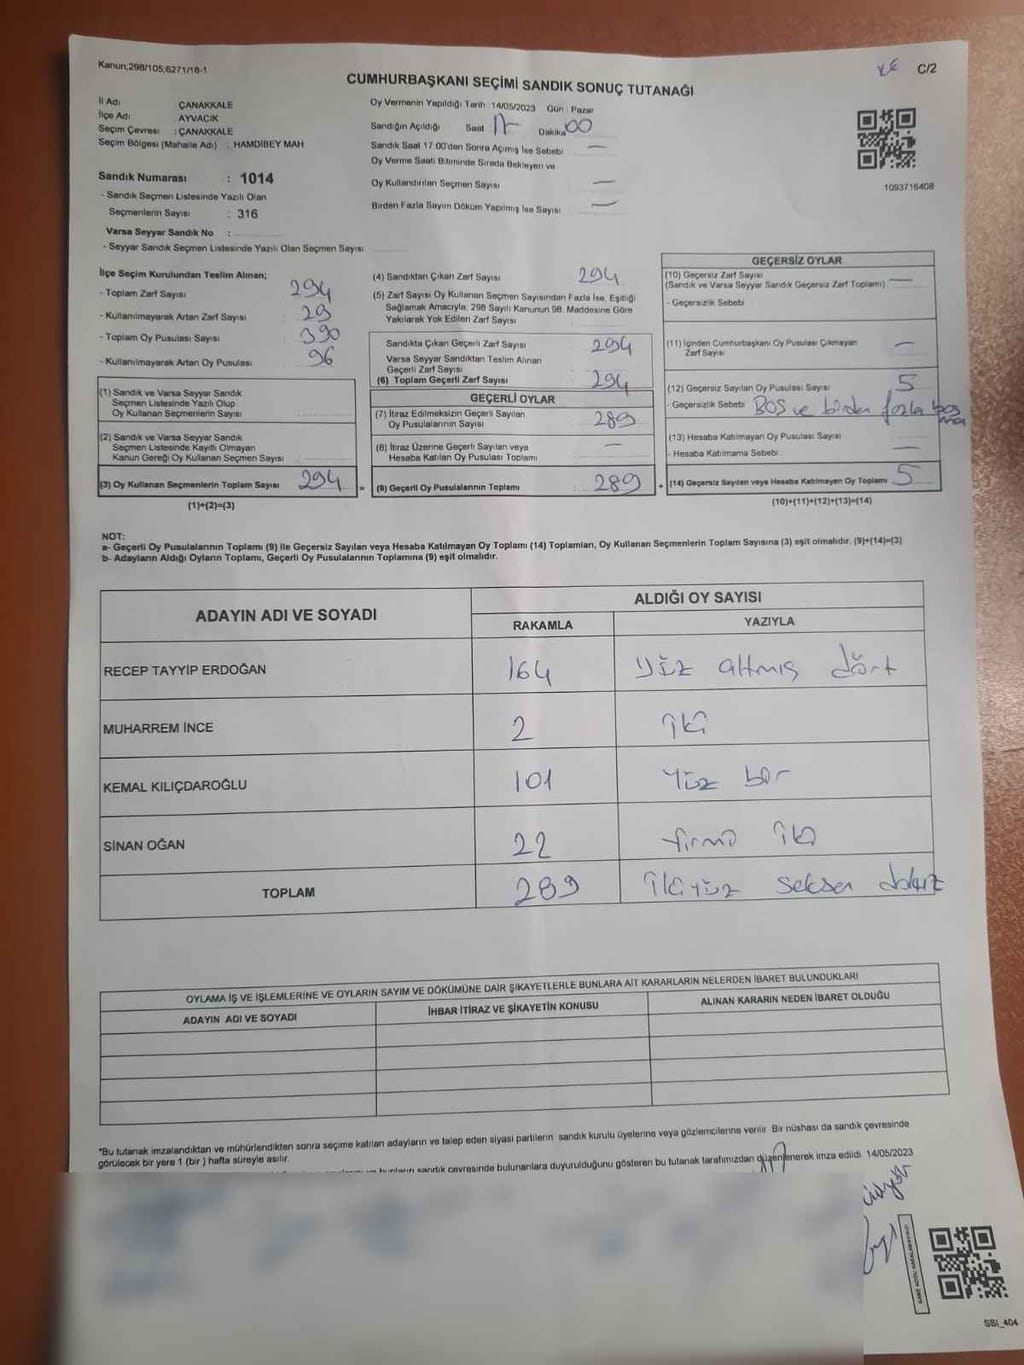 Kanun;298/105;6271/18-1
C/2
CUMHURBAŞKANI SEÇİMİ SANDIK SONUÇ TUTANAĞI
İl Adı ÇANAKKALE
İlçe Adı AYVACIK
Seçim Çevresi : ÇANAKKALE
Seçim Bölgesi (Mahalle Adı) : HAMDİBEY MAH
Sandık Numarası : 1014
- Sandık Seçmen Listesinde Yazılı Olan
Seçmenlerin Sayısı : 316
Varsa Seyyar Sandık No :
- Seyyar Sandık Seçmen Listesinde Yazılı Olan Seçmen Sayısı
Oy Vermenin Yapıldığı Tarih 14/05/2023 Gün : Pazar
Sandığın Açıldığı Saat 17 Dakika 00
Sandık Saat 17:00'den Sonra Açılmış İse Sebebi —
Oy Verme Saati Bitiminde Sırada Bekleyen ve
Oy Kullandırılan Seçmen Sayısı —
Birden Fazla Sayım Döküm Yapılmış İse Sayısı —
1093716408
İlçe Seçim Kurulundan Teslim Alınan;
- Toplam Zarf Sayısı 294
- Kullanılmayarak Artan Zarf Sayısı : 29
- Toplam Oy Pusulası Sayısı : 390
- Kullanılmayarak Artan Oy Pusulası : 96
(1) Sandık ve Varsa Seyyar Sandık
Seçmen Listesinde Yazılı Olup
Oy Kullanan Seçmenlerin Sayısı
(2) Sandık ve Varsa Seyyar Sandık
Seçmen Listesinde Kayıtlı Olmayan
Kanun Gereği Oy Kullanan Seçmen Sayısı
(3) Oy Kullanan Seçmenlerin Toplam Sayısı 294
(1)+(2)=(3)
(4) Sandıktan Çıkan Zarf Sayısı 294
(5) Zarf Sayısı Oy Kullanan Seçmen Sayısından Fazla İse, Eşitliği
Sağlamak Amacıyla, 298 Sayılı Kanunun 98. Maddesine Göre
Yakılarak Yok Edilen Zarf Sayısı
Sandıkta Çıkan Geçerli Zarf Sayısı 294
Varsa Seyyar Sandıktan Teslim Alınan
Geçerli Zarf Sayısı
(6) Toplam Geçerli Zarf Sayısı 294
GEÇERLİ OYLAR
(7) İtiraz Edilmeksizin Geçerli Sayılan
Oy Pusulalarının Sayısı 289
(8) İtiraz Üzerine Geçerli Sayılan veya
Hesaba Katılan Oy Pusulası Toplamı —
= (9) Geçerli Oy Pusulalarının Toplamı 289
GEÇERSİZ OYLAR
(10) Geçersiz Zarf Sayısı
(Sandık ve Varsa Seyyar Sandık Geçersiz Zarf Toplamı) —
- Geçersizlik Sebebi
(11) İçinden Cumhurbaşkanı Oy Pusulası Çıkmayan
Zarf Sayısı —
(12) Geçersiz Sayılan Oy Pusulası Sayısı 5
- Geçersizlik Sebebi BOŞ ve birden fazla basma
(13) Hesaba Katılmayan Oy Pusulası Sayısı
- Hesaba Katılmama Sebebi : —
+ (14) Geçersiz Sayılan veya Hesaba Katılmayan Oy Toplamı 5
(10)+(11)+(12)+(13)=(14)
NOT:
a- Geçerli Oy Pusulalarının Toplamı (9) ile Geçersiz Sayılan veya Hesaba Katılmayan Oy Toplamı (14) Toplamları, Oy Kullanan Seçmenlerin Toplam Sayısına (3) eşit olmalıdır. (9)+(14)=(3)
b- Adayların Aldığı Oyların Toplamı, Geçerli Oy Pusulalarının Toplamına (9) eşit olmalıdır.
ADAYIN ADI VE SOYADI
ALDIĞI OY SAYISI
RAKAMLA YAZIYLA
RECEP TAYYİP ERDOĞAN 164 yüz altmış dört
MUHARREM İNCE 2 iki
KEMAL KILIÇDAROĞLU 101 Yüz bir
SİNAN OĞAN 22 yirmi iki
TOPLAM 289 ikiyüz seksen dokuz
OYLAMA İŞ VE İŞLEMLERİNE VE OYLARIN SAYIM VE DÖKÜMÜNE DAİR ŞİKAYETLERLE BUNLARA AİT KARARLARIN NELERDEN İBARET BULUNDUKLARI
ADAYIN ADI VE SOYADI
İHBAR İTİRAZ VE ŞİKAYETİN KONUSU
ALINAN KARARIN NEDEN İBARET OLDUĞU
*Bu tutanak imzalandıktan ve mühürlendikten sonra seçime katılan adayların ve talep eden siyasi partilerin sandık kurulu üyelerine veya gözlemcilerine verilir. Bir nüshası da sandık çevresinde
görülecek bir yere 1 (bir ) hafta süreyle asılır.
bunların sandık çevresinde bulunanlara duyurulduğunu gösteren bu tutanak tarafımızdan düzenlenerek imza edildi. 14/05/2023
SSI_404